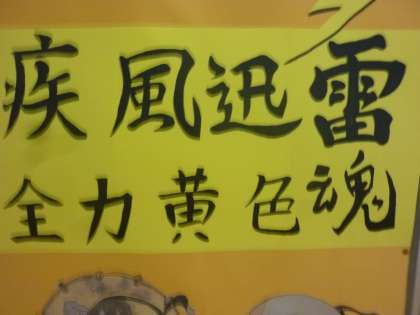 疾風迅雷
全力黄色魂